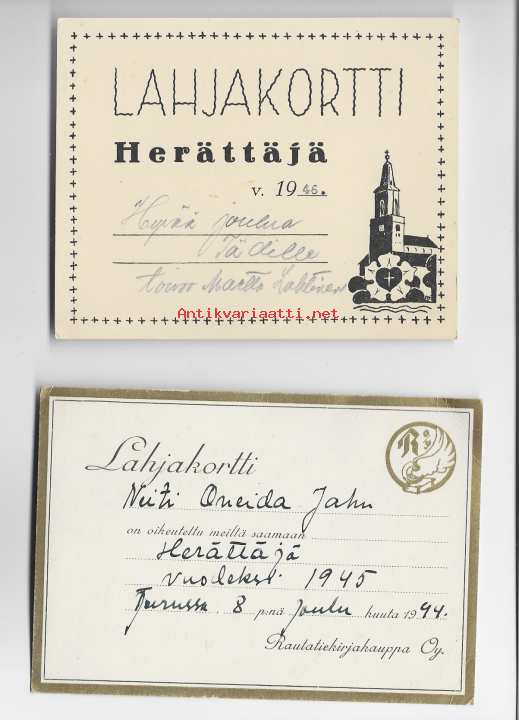 LAHJAKORTTI
Herättäjä
v. 1946.
Hyvää joulua
Tädille
toivoo Martta Lahtinen
Antikvariaatti.net
R oy
Lahjakortti
Neiti Oneida Jahn
on oikeutettu meiltä saamaan
Herättäjä
vuodeksi 1945
Turussa 8 p:nä Joulu kuuta 1944.
Rautatiekirjakauppa Oy.